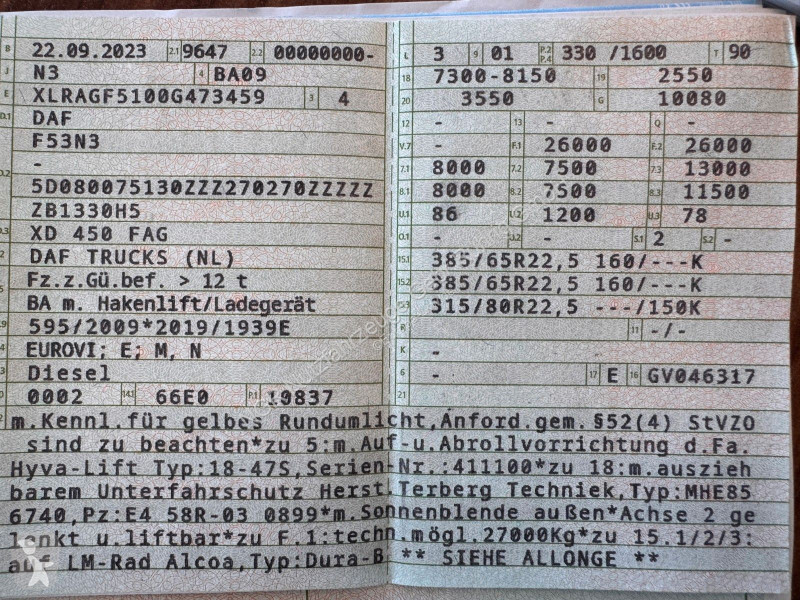 B 22.09.2023 2.1 9647 2.2 00000000-
J N3 4 BA09
E XLRAGF5100G473459 3 4
D.1 DAF
F53N3
D.2 -
5D080075130ZZZ270270ZZZZZ
ZB1330H5
D.3 XD 450 FAG
DAF TRUCKS (NL)
5 Fz.z.Gü.bef. > 12 t
BA m. Hakenlift/Ladegerät
595/2009*2019/1939E
EUROVI; E; M, N
Diesel
0002 14.1 66E0 P.1 10837
L 3 9 01 P.2 P.4 330 /1600 T 90
18 7300-8150 19 2550
20 3550 G 10080
12 - 13 - Q -
V.7 - F.1 26000 F.2 26000
7.1 8000 7.2 7500 7.3 13000
8.1 8000 8.2 7500 8.3 11500
U.1 86 U.2 1200 U.3 78
O.1 - O.2 - S.1 2 S.2 -
15.1 385/65R22,5 160/---K
15.2 385/65R22,5 160/---K
15.3 315/80R22,5 ---/150K
R 11 -/-
K -
6 - 17 E 16 GV046317
21
m.Kennl.für gelbes Rundumlicht,Anford.gem.§52(4) StVZO
sind zu beachten*zu 5:m.Auf-u.Abrollvorrichtung d.Fa.
Hyva-Lift Typ:18-47S,Serien-Nr.:411100*zu 18:m.auszieh
barem Unterfahrschutz Herst.Terberg Techniek,Typ:MHE85
6740,Pz:E4 58R-03 0899*m.Sonnenblende außen*Achse 2 ge
lenkt u.liftbar*zu F.1:techn.mögl.27000Kg*zu 15.1/2/3:
auf LM-Rad Alcoa,Typ:Dura-B ** SIEHE ALLONGE **